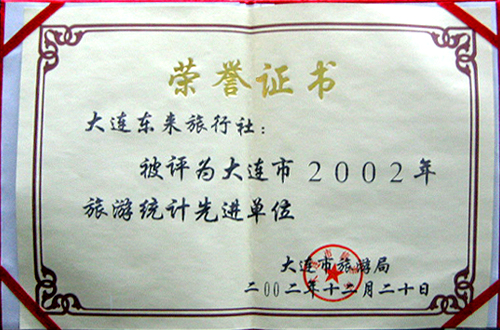 荣誉证书
大连东来旅行社：
被评为大连市2002年
旅游统计先进单位
大连市旅游局
二00二年十二月二十日